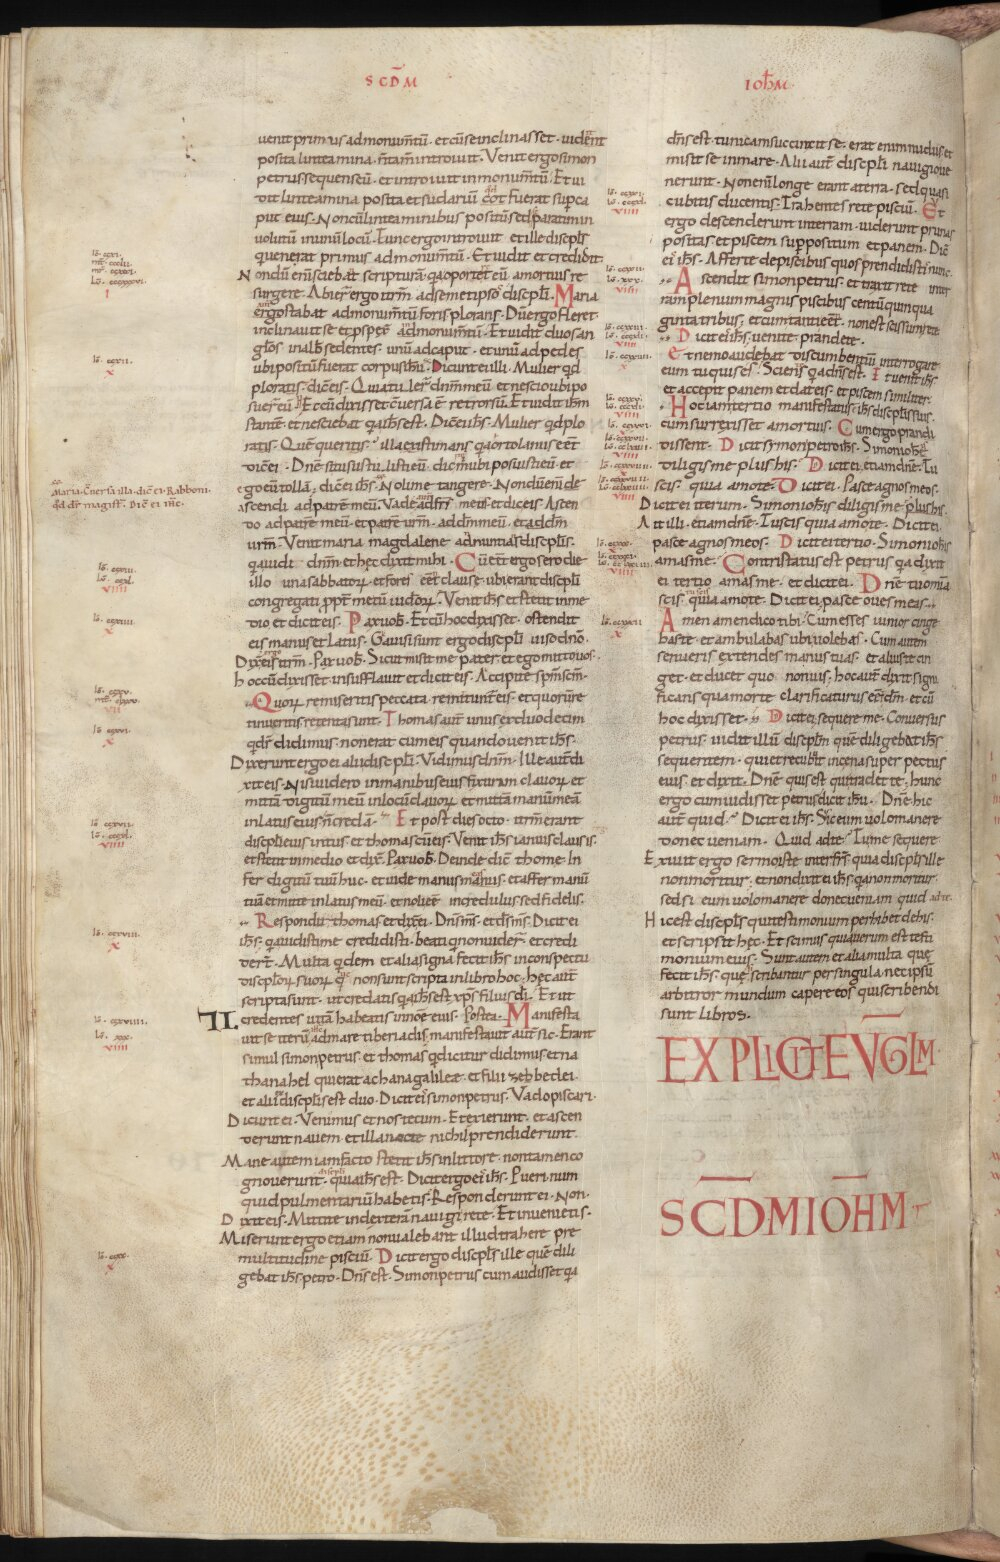 SCD̄M
IOH̄M
uenit primus ad monumtū · et cū se inclinasset · uidet
posita linteamina · n̄ tam̄ introiuit · Venit ergo simon
petrus sequens eū · et introiuit in monumtū · Et ui
dit linteamina posita et sudariū qd̄ fuerat sup ca
put eius · Non cū linteaminibus positū sed separatim in
uolutū in unū locū · Tunc ergo introiuit et ille discipl̄s
qui uenerat primus ad monumtū · Et uidit et credidit
Nondū eni sciebāt scripturā · qa oportet eū a mortuis re
surgere · Abier̄ ergo itrm̄ ad semetipsos discipl̄i · Maria
ergo stabat ad monumtū foris plorans · Dū ergo fleret
inclinauit se et pspex̄ ad monumtū · Et uidit duos an
gl̄os in alb̄ sedentes · unū ad caput · et unū ad pedes
ubi positū fuerat corpus ih̄u · Dicunt ei illi · Mulier qd
ploras · dic̄ eis · Quia tuler̄ dn̄m meū · et nescio ubi po
suer̄ eū · Ec cū dixisset c̄uersa ē retrorsū · Et uidit ih̄m
stantē · et nesciebat qa ih̄s est · Dic̄ ei ih̄s · Mulier qd plo
ras · Quē queris · illa existimans qa ortolanus eēt
dic̄ ei · Dn̄e si tu sustulisti eū · dic m ubi posuisti eū · et
ego eū tollā · dic̄ ei ih̄s · Noli me tangere · Nondū eni
ascendi ad patrē meū · Vade ad fr̄s meos et dic eis · Ascen
do ad patrē meū · et patrē ur̄m · ad dm̄ meū · et ad dm̄
ur̄m · Venit maria magdalene adnuntians discipl̄is ·
qa uidi dn̄m · et hęc dixit mihi · Cū eēt ergo sero die
illo una sabbatorꝝ · et fores eēt clause · ubi erant discipl̄i
congregati ppt̄ metū iudeorꝝ · Venit ih̄s et stetit in me
dio et dicit eis · Pax uob̄ · Et cū hoc dixisset · ostendit
eis manus et latus · Gauisi sunt ergo discipl̄i uiso dn̄o ·
Dixit eis itrm̄ · Pax uob̄ · Sicut misit me pater et ego mitto uos ·
hoc cū dixisset insufflauit et dicit eis · Accipite spm̄ scm̄ ·
Quorꝝ remiseritis peccata · remittunt̄ eis · et quorū re
tinueritis retenta sunt · Thomas aut̄ unus ex duodecim
qui dr̄ didimus · non erat cum eis quando uenit ih̄s ·
Dixerunt ergo ei alii discipl̄i · Vidimus dn̄m · Ille aut̄ di
xit eis · Nisi uidero in manibus eius fixuram clauorꝝ · et
mittā digitū meū in locū clauorꝝ · et mittā manū meā
in latus eius n̄ credā · Et post dies octo · itrm̄ erant
discipl̄i eius intus · et thomas cū eis · Venit ih̄s ianuis clausis ·
et stetit in medio et dix̄ · Pax uob̄ · Deinde dic̄ thome · In
fer digitū tuū huc · et uide manus meas · et affer manū
tuā et mitte in latus meū · et noli eē incredulus sed fidelis ·
Respondit thomas et dix̄ ei · Dn̄s m̄s · et d̄s m̄s · Dicit ei
ih̄s · qa uidisti me credidisti · beati qi non uider̄ et credi
der̄t · Multa qdem et alia signa fecit ih̄s in conspectu
discipl̄orꝝ suorꝝ · que non sunt scripta in libro hoc · hęc aut̄
scripta sunt · ut credatis qa ih̄s est xp̄s filius dī · Et ut
credentes uitā habeatis in nōe eius · Postea · Manifesta
uit se iterū ad mare tiberiadis · manifestauit aut̄ sic · Erant
simul simon petrus · et thomas qi dicitur didimus · et na
thanahel qui erat a chana galileæ · et filii zebedei ·
et alii ex discipl̄is ei duo · Dicit eis simon petrus · Vado piscari ·
Dicunt ei · Venimus et nos tecum · Et exierunt · et ascen
derunt nauem · et illa nocte nichil prendiderunt ·
Mane autem iam facto stetit ih̄s in littore · non tam en co
gnouerunt discipl̄i quia ih̄s est · Dicit ergo ei ih̄s · Pueri num
quid pulmentariū habetis · Responderunt ei · Non ·
Dixit eis · Mittite in dexterā nauigii rete · Et inuenietis ·
Miserunt ergo et iam non ualebant illud trahere pre
multitudine pisciū · Dicit ergo discipl̄s ille quē dili
gebat ih̄s petro · Dn̄s est · Simon petrus cum audisset qa
Maria · C̄uersa illa · dic̄ ei · Rabboni ·
qd dr̄ magist̄ · Dic̄ ei ih̄c ·
dn̄s est · tunica succincit se · erat enim nudus · et
misit se in mare · Alii aut̄ discipl̄i nauigio ue
nerunt · Non eni longe erant a terra · sed quasi
cubitis ducentis · Trahentes rete pisciū · Et
ergo descenderunt in terram · uiderunt prunas
positas · et piscem suppositum et panem · Dic̄
ei ih̄s · Afferte de piscibus quos prendidisti nunc ·
Ascendit simon petrus · et traxit rete in ter
ram plenum magnis piscibus centū quinqua
ginta tribus · et cum tanti eēnt · non est scissum rete
Dicit ei ih̄s · uenite prandete ·
Et nemo audebat discumbentiū interrogare
eum tu qui es · Scienti qa dn̄s est · Et uenit ih̄s
et accepit panem et dat eis · et piscem similiter ·
Hoc iam tertio manifestatus · ih̄s discipl̄is suis ·
cum surrexisset a mortuis · Cum ergo prandi
dissent · Dicit symoni petro ih̄s · Simon ioh̄s
diligis me plus his · Dicit ei · etiam dn̄e · Tu
scis · quia amo te · Dicit ei · Pasce agnos meos ·
Dicit ei iterum · Simon ioh̄s diligis me plus his
Ait illi · etiam dn̄e · Tu scis quia amo te · Dicit ei
pasce agnos meos · Dicit ei tertio · Simon ioh̄s
amas me · Contristatus est petrus · qa dixit
ei tertio amas me · et dicit ei · Dn̄e tu omnia
scis · tu scis quia amo te · Dicit ei · pasce oues meas ·
Amen amen dico tibi · Cum esses iunior cinge
bas te · et ambulabas ubi uolebas · Cum autem
senueris extendes manus tuas · et alius te cin
get · et ducet quo non uis · hoc aut̄ dixit signi
ficans qua morte clarificaturus eēt dm̄ · et cū
hoc dixisset · Dicit ei · sequere me · Conuersus
petrus · uidit illū discipl̄m quē diligebat ih̄s
sequentem · qui et recubūit in cena super pectus
eius · et dixit · Dn̄e quis est qui tradet te · hunc
ergo cum uidisset petrus dicit ih̄u · Dn̄e hic
aut̄ quid · Dicit ei ih̄s · Sic eum uolo manere
donec ueniam · Quid ad te · Tu me sequere
Exiuit ergo sermo iste inter fr̄s · quia discipl̄s ille
non moritur · et non dixit ei ih̄s · qa non moritur ·
sed si eum uolo manere donec ueniam quid ad te ·
Hic est discipl̄s qui testimonium perhibet de his ·
et scripsit hęc · Et scimus quia uerum est testi
monium eius · Sunt autem et alia multa quę
fecit ih̄s · quę si scribantur per singula · nec ipsū
arbitror mundum capere eos qui scribendi
sunt libros ·
EXPLICIT EVḠLM
SCD̄M IOH̄M